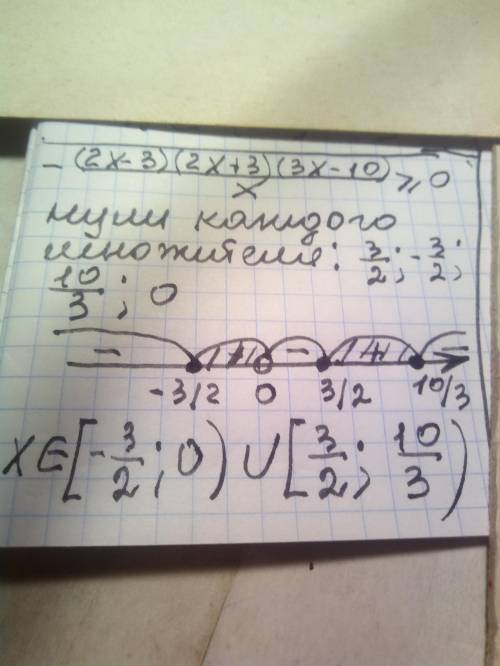 - (2x-3)(2x+3)(3x-10)/x ⩾ 0
нули каждого
множителя: 3/2; -3/2;
10/3; 0
- + - + -
-3/2 0 3/2 10/3
x∈[-3/2; 0) ∪ [3/2; 10/3)